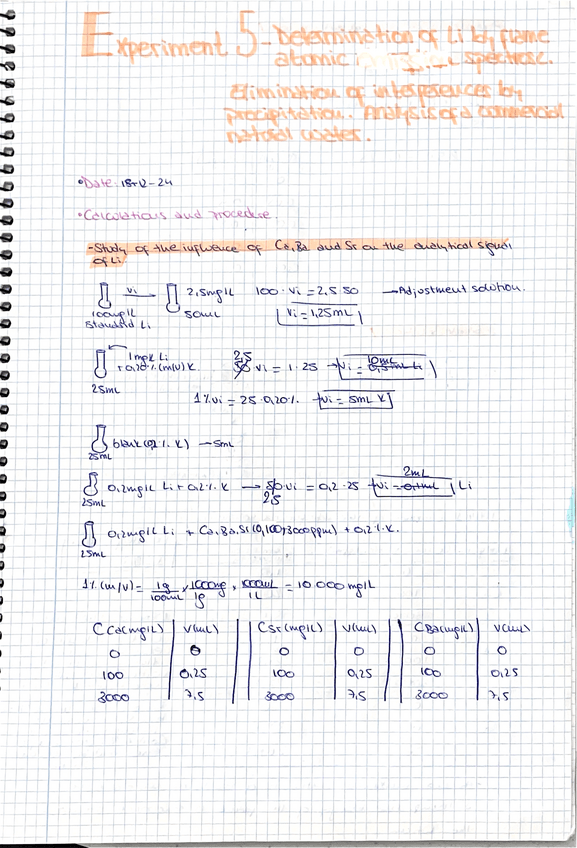 Experiment 5 - Determination of Li by flame
atomic spectrosc.
Elimination of interferences by
precipitation. Analysis of a commercial
natural water.
• Date: 18-12-24
• Calculations and procedure.
- Study of the influence of Ca, Ba and Sr on the analytical signal
of Li
Vi 2,5mg/L 100·Vi = 2,5·50 → Adjustment solution.
100mg/L 50mL Vi = 1,25mL
Standard Li
1mg/L Li 2,5 10mL
+0,20% (m/v) K. 50 Vi = 1·25 → Vi = 0,5mL Li
25mL
1% Vi = 25·0,20% → Vi = 5mL K
blank (0,2% K) → 5mL
25mL
2mL
0,2mg/L Li + 0,2% K → 50 Vi = 0,2·25 → Vi = 0,1mL Li
25mL 2,5
0,2mg/L Li + Ca, Ba, Sr (0,100,3000ppm) + 0,2% K.
25mL
1% (m/v) = 1g/100mL × 1000mg/1g × 1000mL/1L = 10 000 mg/L
C Ca (mg/L) V(mL) C Sr (mg/L) V(mL) C Ba (mg/L) V(mL)
0 0 0 0 0 0
100 0,25 100 0,25 100 0,25
3000 7,5 3000 7,5 3000 7,5